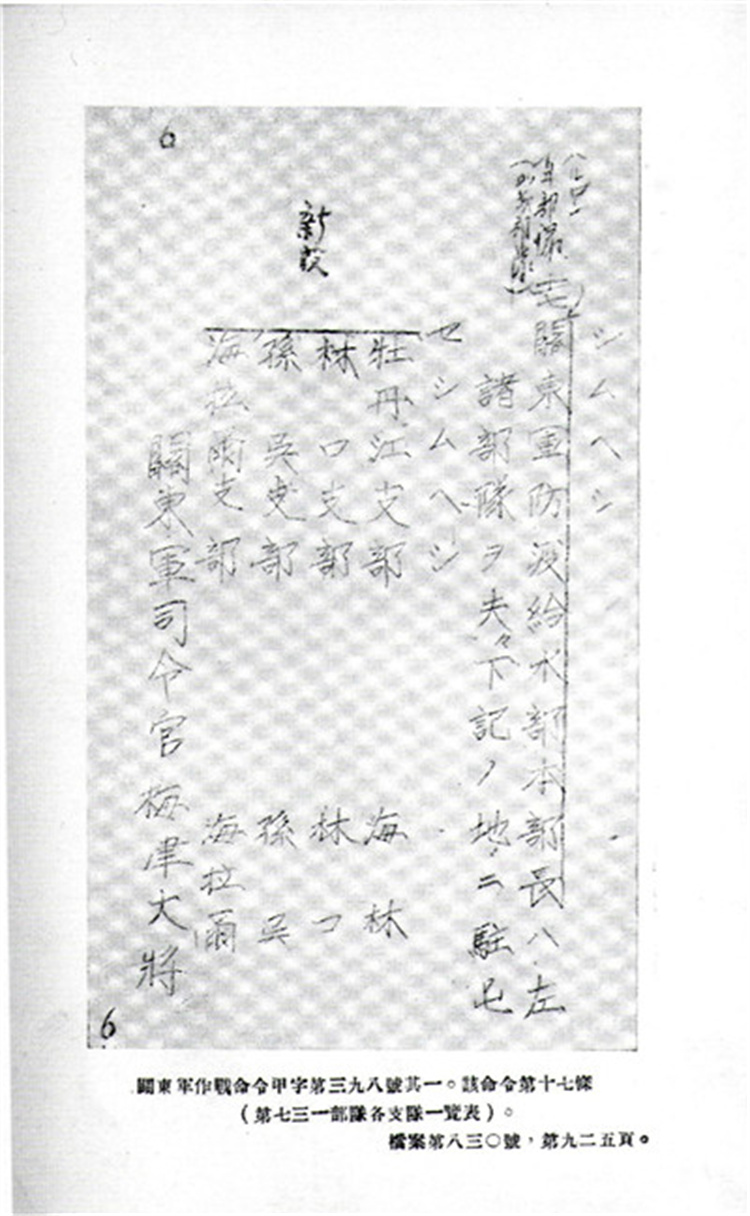 6
シムヘシ
關東軍防疫給水部本部長ハ左
諸部隊ヲ夫々下記ノ地ニ駐屯
セシムヘシ
牡丹江支部 海林
林口支部 林口
孫吳支部 孫吳
海拉爾支部 海拉爾
關東軍司令官梅津大將
6
關東軍作戰命令甲字第三九八號其一。該命令第十七條
(第七三一部隊各支隊一覽表)。
檔案第八三〇號，第九二五頁。